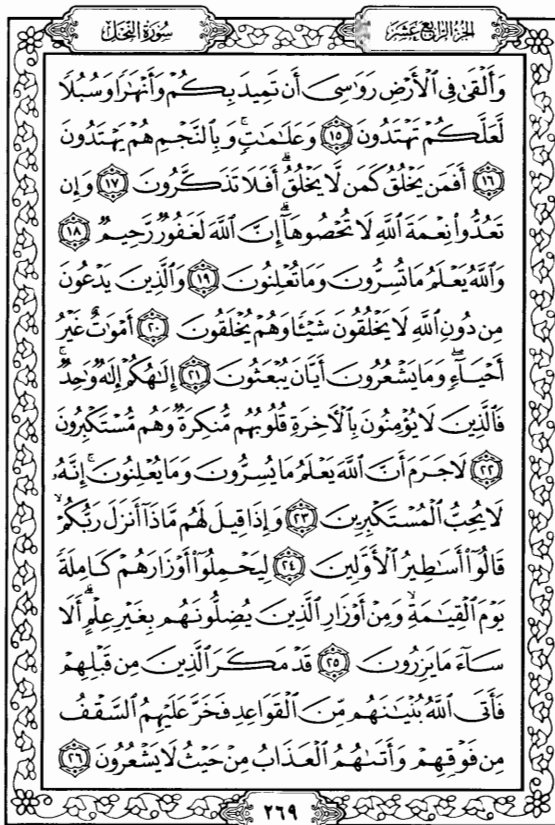 سُورَةُ النَّحْلِ
الجُزْءُ الرَّابِعَ عَشَرَ
وَأَلْقَىٰ فِي ٱلْأَرْضِ رَوَٰسِىَ أَن تَمِيدَ بِكُمْ وَأَنْهَٰرًا وَسُبُلًا
لَّعَلَّكُمْ تَهْتَدُونَ ١٥ وَعَلَٰمَٰتٍۚ وَبِٱلنَّجْمِ هُمْ يَهْتَدُونَ
١٦ أَفَمَن يَخْلُقُ كَمَن لَّا يَخْلُقُۗ أَفَلَا تَذَكَّرُونَ ١٧ وَإِن
تَعُدُّوا۟ نِعْمَةَ ٱللَّهِ لَا تُحْصُوهَآۗ إِنَّ ٱللَّهَ لَغَفُورٌ رَّحِيمٌ ١٨
وَٱللَّهُ يَعْلَمُ مَا تُسِرُّونَ وَمَا تُعْلِنُونَ ١٩ وَٱلَّذِينَ يَدْعُونَ
مِن دُونِ ٱللَّهِ لَا يَخْلُقُونَ شَيْـًٔا وَهُمْ يُخْلَقُونَ ٢٠ أَمْوَٰتٌ غَيْرُ
أَحْيَآءٍۖ وَمَا يَشْعُرُونَ أَيَّانَ يُبْعَثُونَ ٢١ إِلَٰهُكُمْ إِلَٰهٌ وَٰحِدٌۚ
فَٱلَّذِينَ لَا يُؤْمِنُونَ بِٱلْءَاخِرَةِ قُلُوبُهُم مُّنكِرَةٌ وَهُم مُّسْتَكْبِرُونَ
٢٢ لَا جَرَمَ أَنَّ ٱللَّهَ يَعْلَمُ مَا يُسِرُّونَ وَمَا يُعْلِنُونَۚ إِنَّهُۥ
لَا يُحِبُّ ٱلْمُسْتَكْبِرِينَ ٢٣ وَإِذَا قِيلَ لَهُم مَّاذَآ أَنزَلَ رَبُّكُمْۙ
قَالُوٓا۟ أَسَٰطِيرُ ٱلْأَوَّلِينَ ٢٤ لِيَحْمِلُوٓا۟ أَوْزَارَهُمْ كَامِلَةً
يَوْمَ ٱلْقِيَٰمَةِۙ وَمِنْ أَوْزَارِ ٱلَّذِينَ يُضِلُّونَهُم بِغَيْرِ عِلْمٍۗ أَلَا
سَآءَ مَا يَزِرُونَ ٢٥ قَدْ مَكَرَ ٱلَّذِينَ مِن قَبْلِهِمْ
فَأَتَى ٱللَّهُ بُنْيَٰنَهُم مِّنَ ٱلْقَوَاعِدِ فَخَرَّ عَلَيْهِمُ ٱلسَّقْفُ
مِن فَوْقِهِمْ وَأَتَىٰهُمُ ٱلْعَذَابُ مِنْ حَيْثُ لَا يَشْعُرُونَ ٢٦
٢٦٩